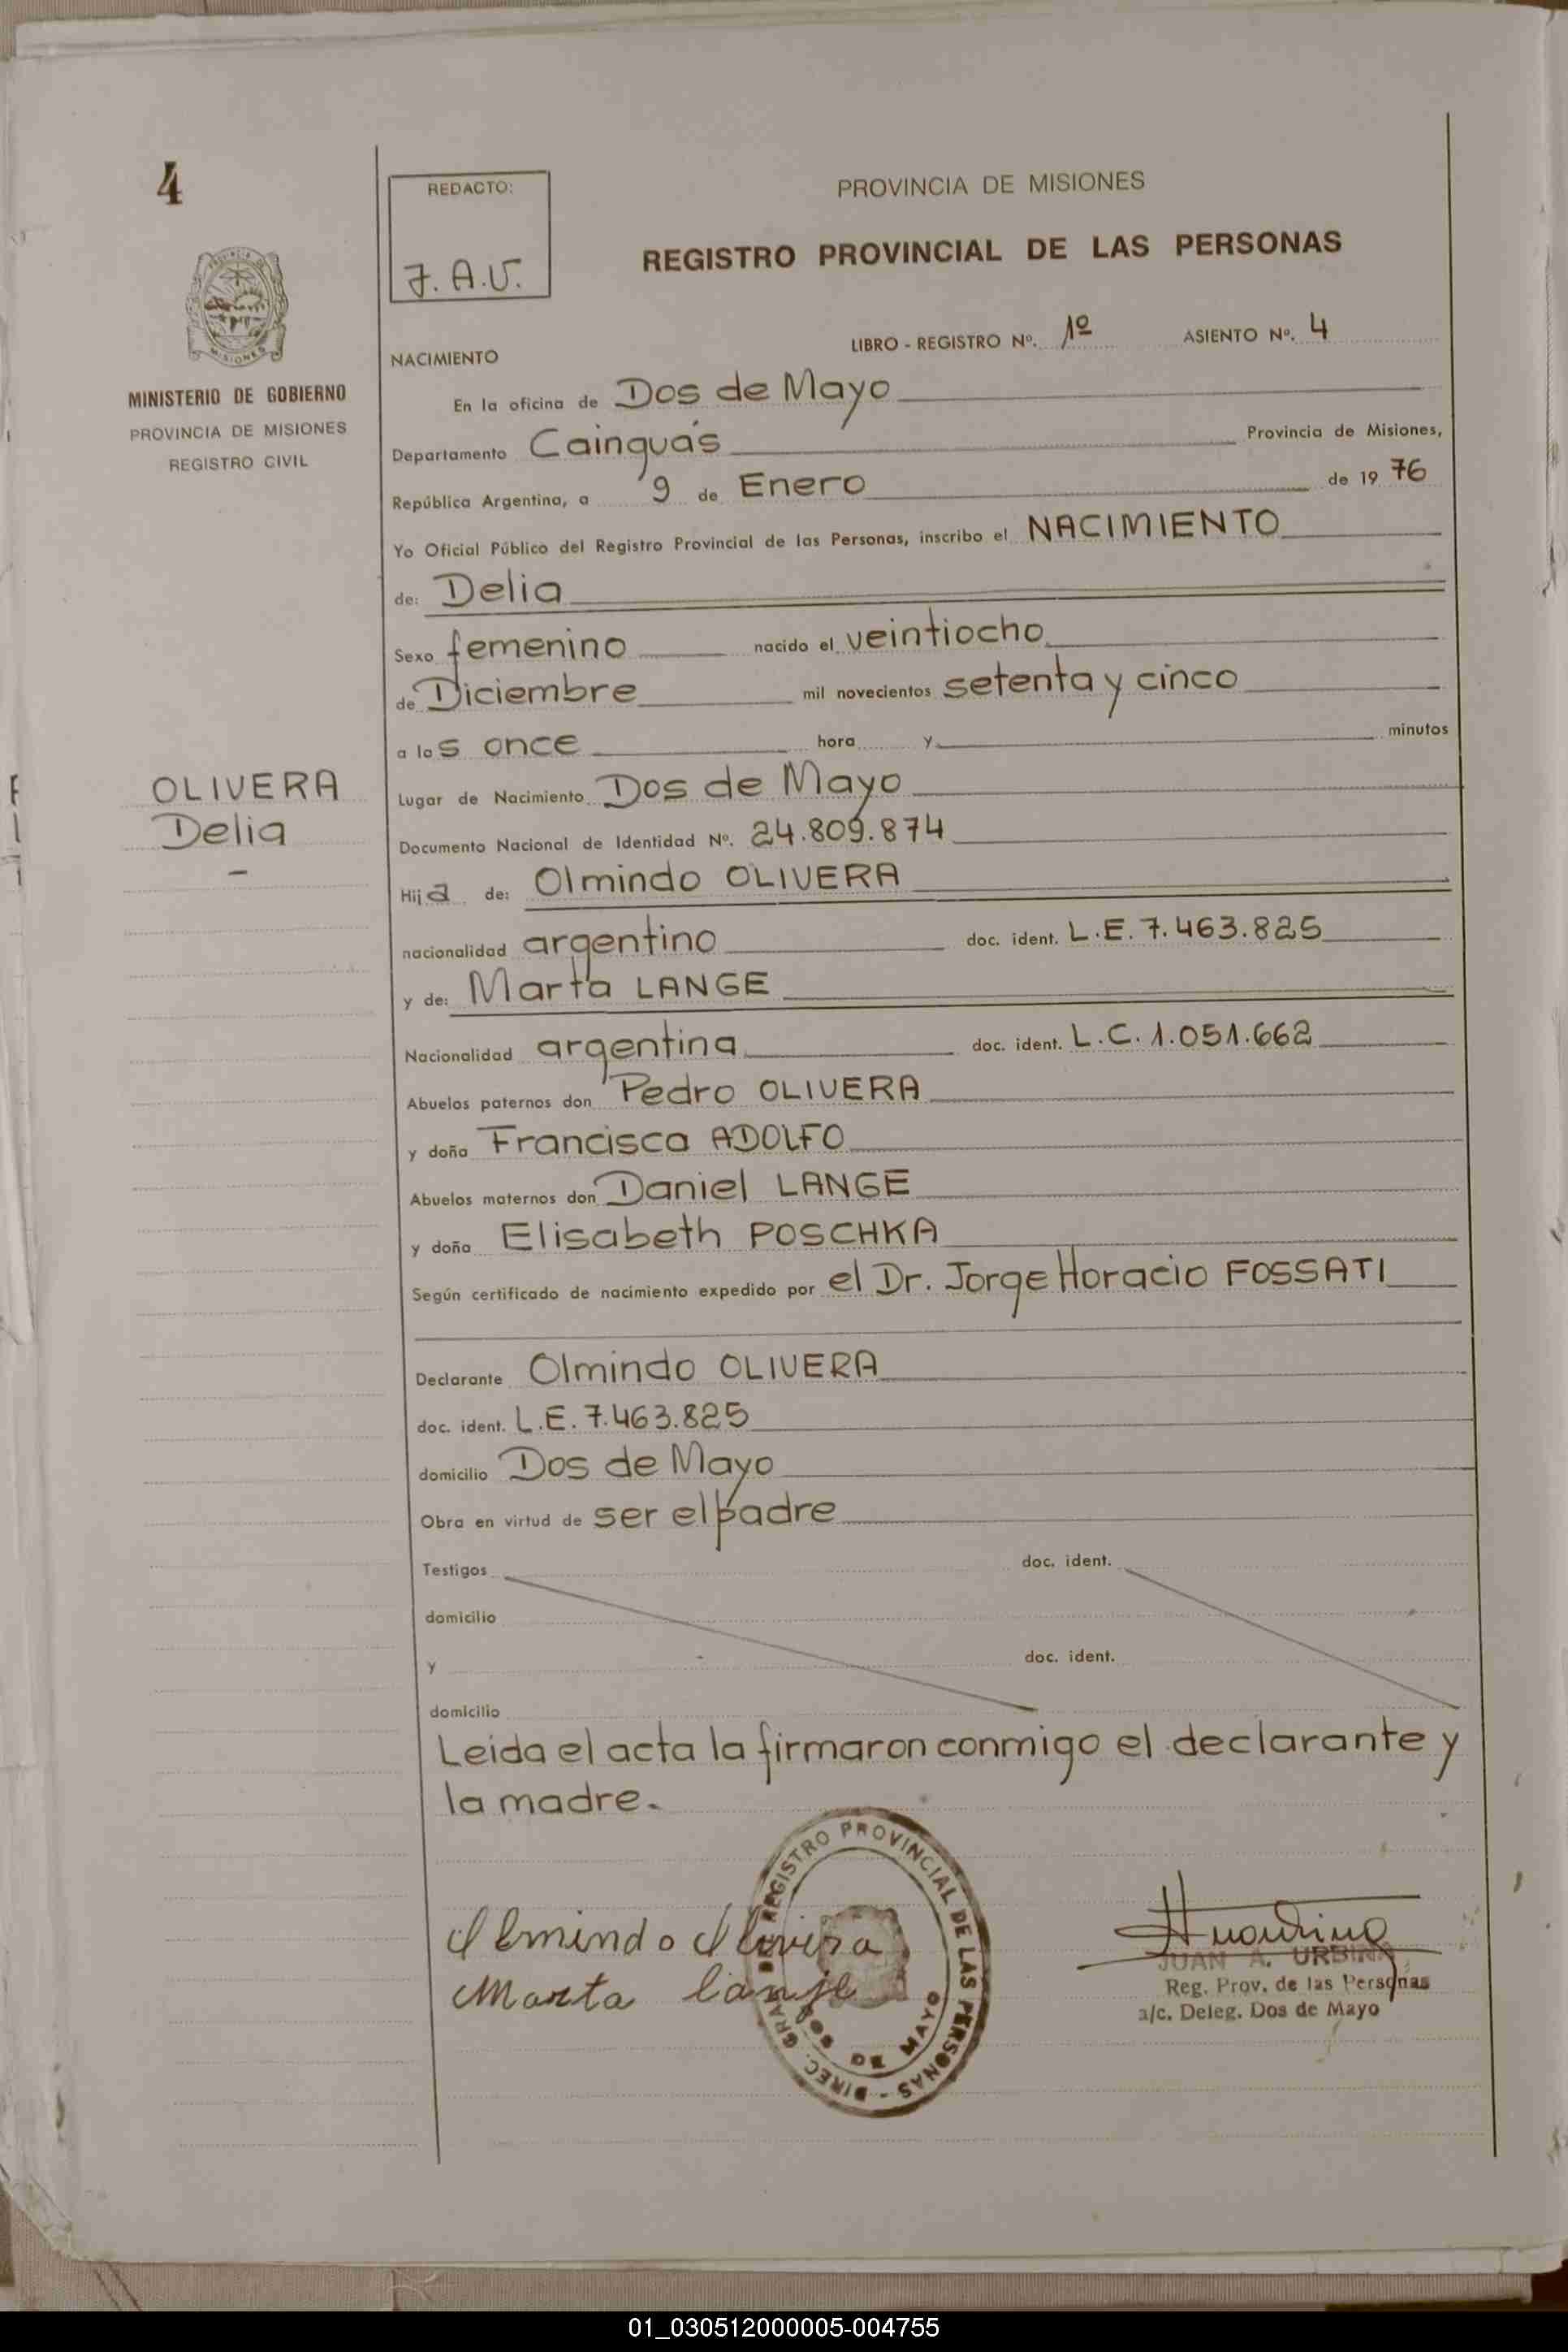 4
REDACTO:
J. A. U.
PROVINCIA DE MISIONES
REGISTRO PROVINCIAL DE LAS PERSONAS
MISIONES
MINISTERIO DE GOBIERNO
PROVINCIA DE MISIONES
REGISTRO CIVIL
LIBRO - REGISTRO Nº. 1º ASIENTO Nº. 4
NACIMIENTO
En la oficina de Dos de Mayo
Departamento Cainguás Provincia de Misiones,
República Argentina, a 9 de Enero de 19 76
Yo Oficial Público del Registro Provincial de las Personas, inscribo el NACIMIENTO
de: Delia
Sexo femenino nacido el veintiocho
de Diciembre mil novecientos setenta y cinco
a las once hora y minutos
OLIVERA
Delia
Lugar de Nacimiento Dos de Mayo
Documento Nacional de Identidad Nº. 24.809.874
Hija de: Olmindo OLIVERA
nacionalidad argentino doc. ident. L.E. 7.463.825
y de: Marta LANGE
Nacionalidad argentina doc. ident. L.C. 1.051.662
Abuelos paternos don Pedro OLIVERA
y doña Francisca ADOLFO
Abuelos maternos don Daniel LANGE
y doña Elisabeth POSCHKA
Según certificado de nacimiento expedido por el Dr. Jorge Horacio FOSSATI
Declarante Olmindo OLIVERA
doc. ident. L.E. 7.463.825
domicilio Dos de Mayo
Obra en virtud de ser el padre
Testigos doc. ident.
domicilio
y doc. ident.
domicilio
Leida el acta la firmaron conmigo el declarante y
la madre.
REGISTRO PROVINCIAL DE LAS PERSONAS - DIREC. GRAL.
DOS DE MAYO
Olmindo Olivera
Marta Lanje
JUAN A. URBINA
Reg. Prov. de las Personas
a/c. Deleg. Dos de Mayo
01_030512000005-004755